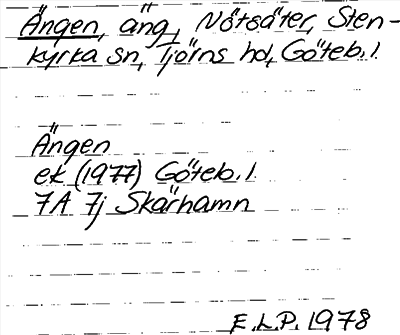 Ängen, äng, Nötsäter, Sten-
kyrka sn, Tjörns hd, Göteb. l.
Ängen
ek (1977) Göteb. l.
7A 7j Skärhamn
E.L.P. 1978